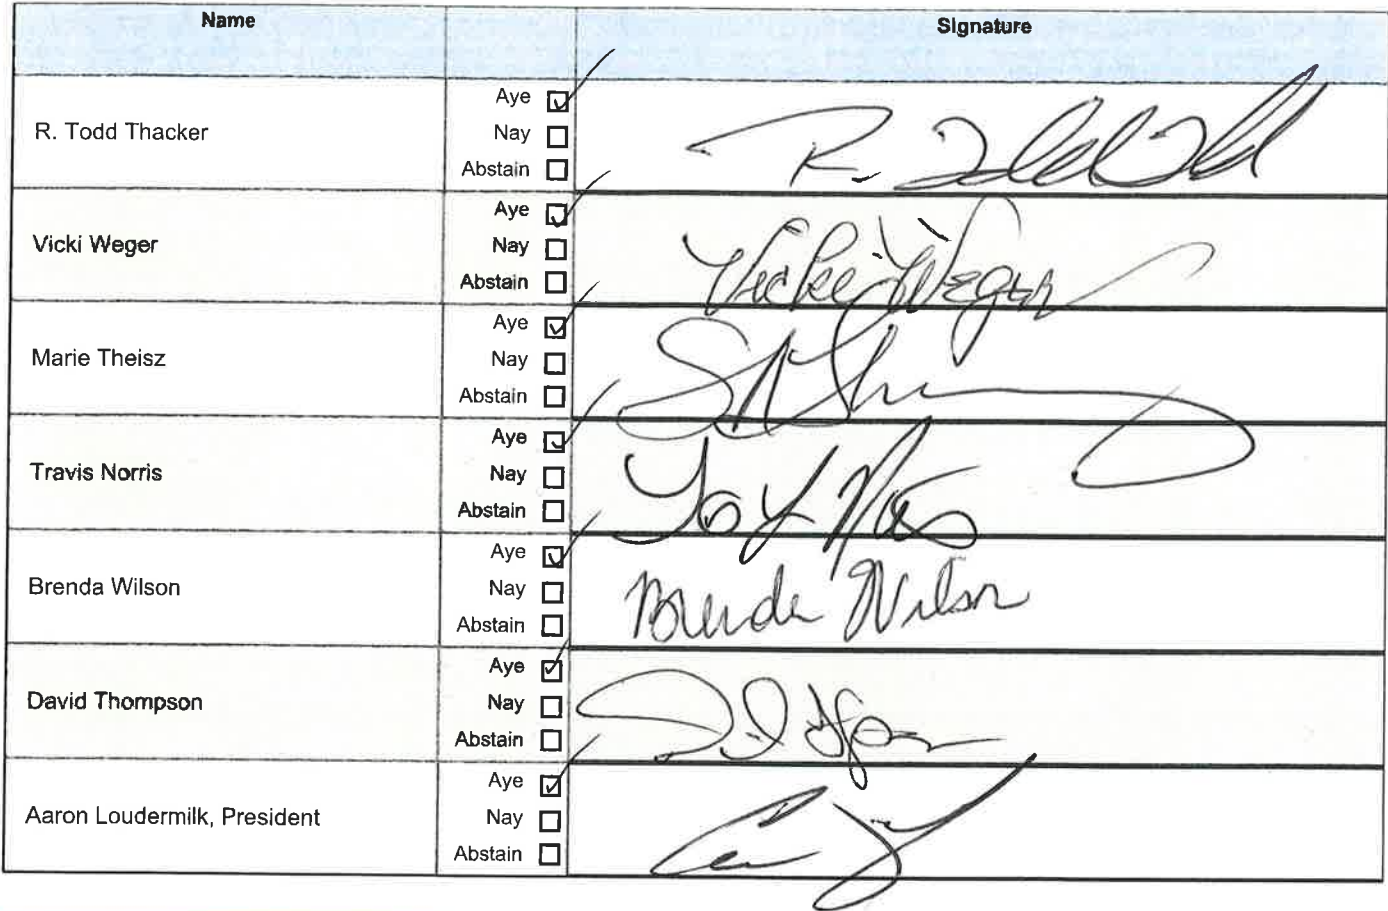 Name Signature
R. Todd Thacker
Aye ☑
Nay ☐
Abstain ☐
Vicki Weger
Aye ☑
Nay ☐
Abstain ☐
Vicki Weger
Marie Theisz
Aye ☑
Nay ☐
Abstain ☐
Travis Norris
Aye ☑
Nay ☐
Abstain ☐
Brenda Wilson
Aye ☑
Nay ☐
Abstain ☐
Brenda Wilson
David Thompson
Aye ☑
Nay ☐
Abstain ☐
Aaron Loudermilk, President
Aye ☑
Nay ☐
Abstain ☐